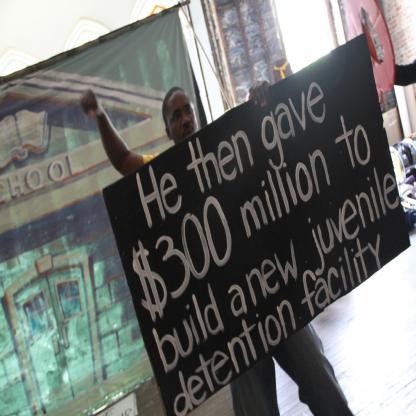 CHOOL
He then gave
$300 million to
build a new juvenile
detention facility